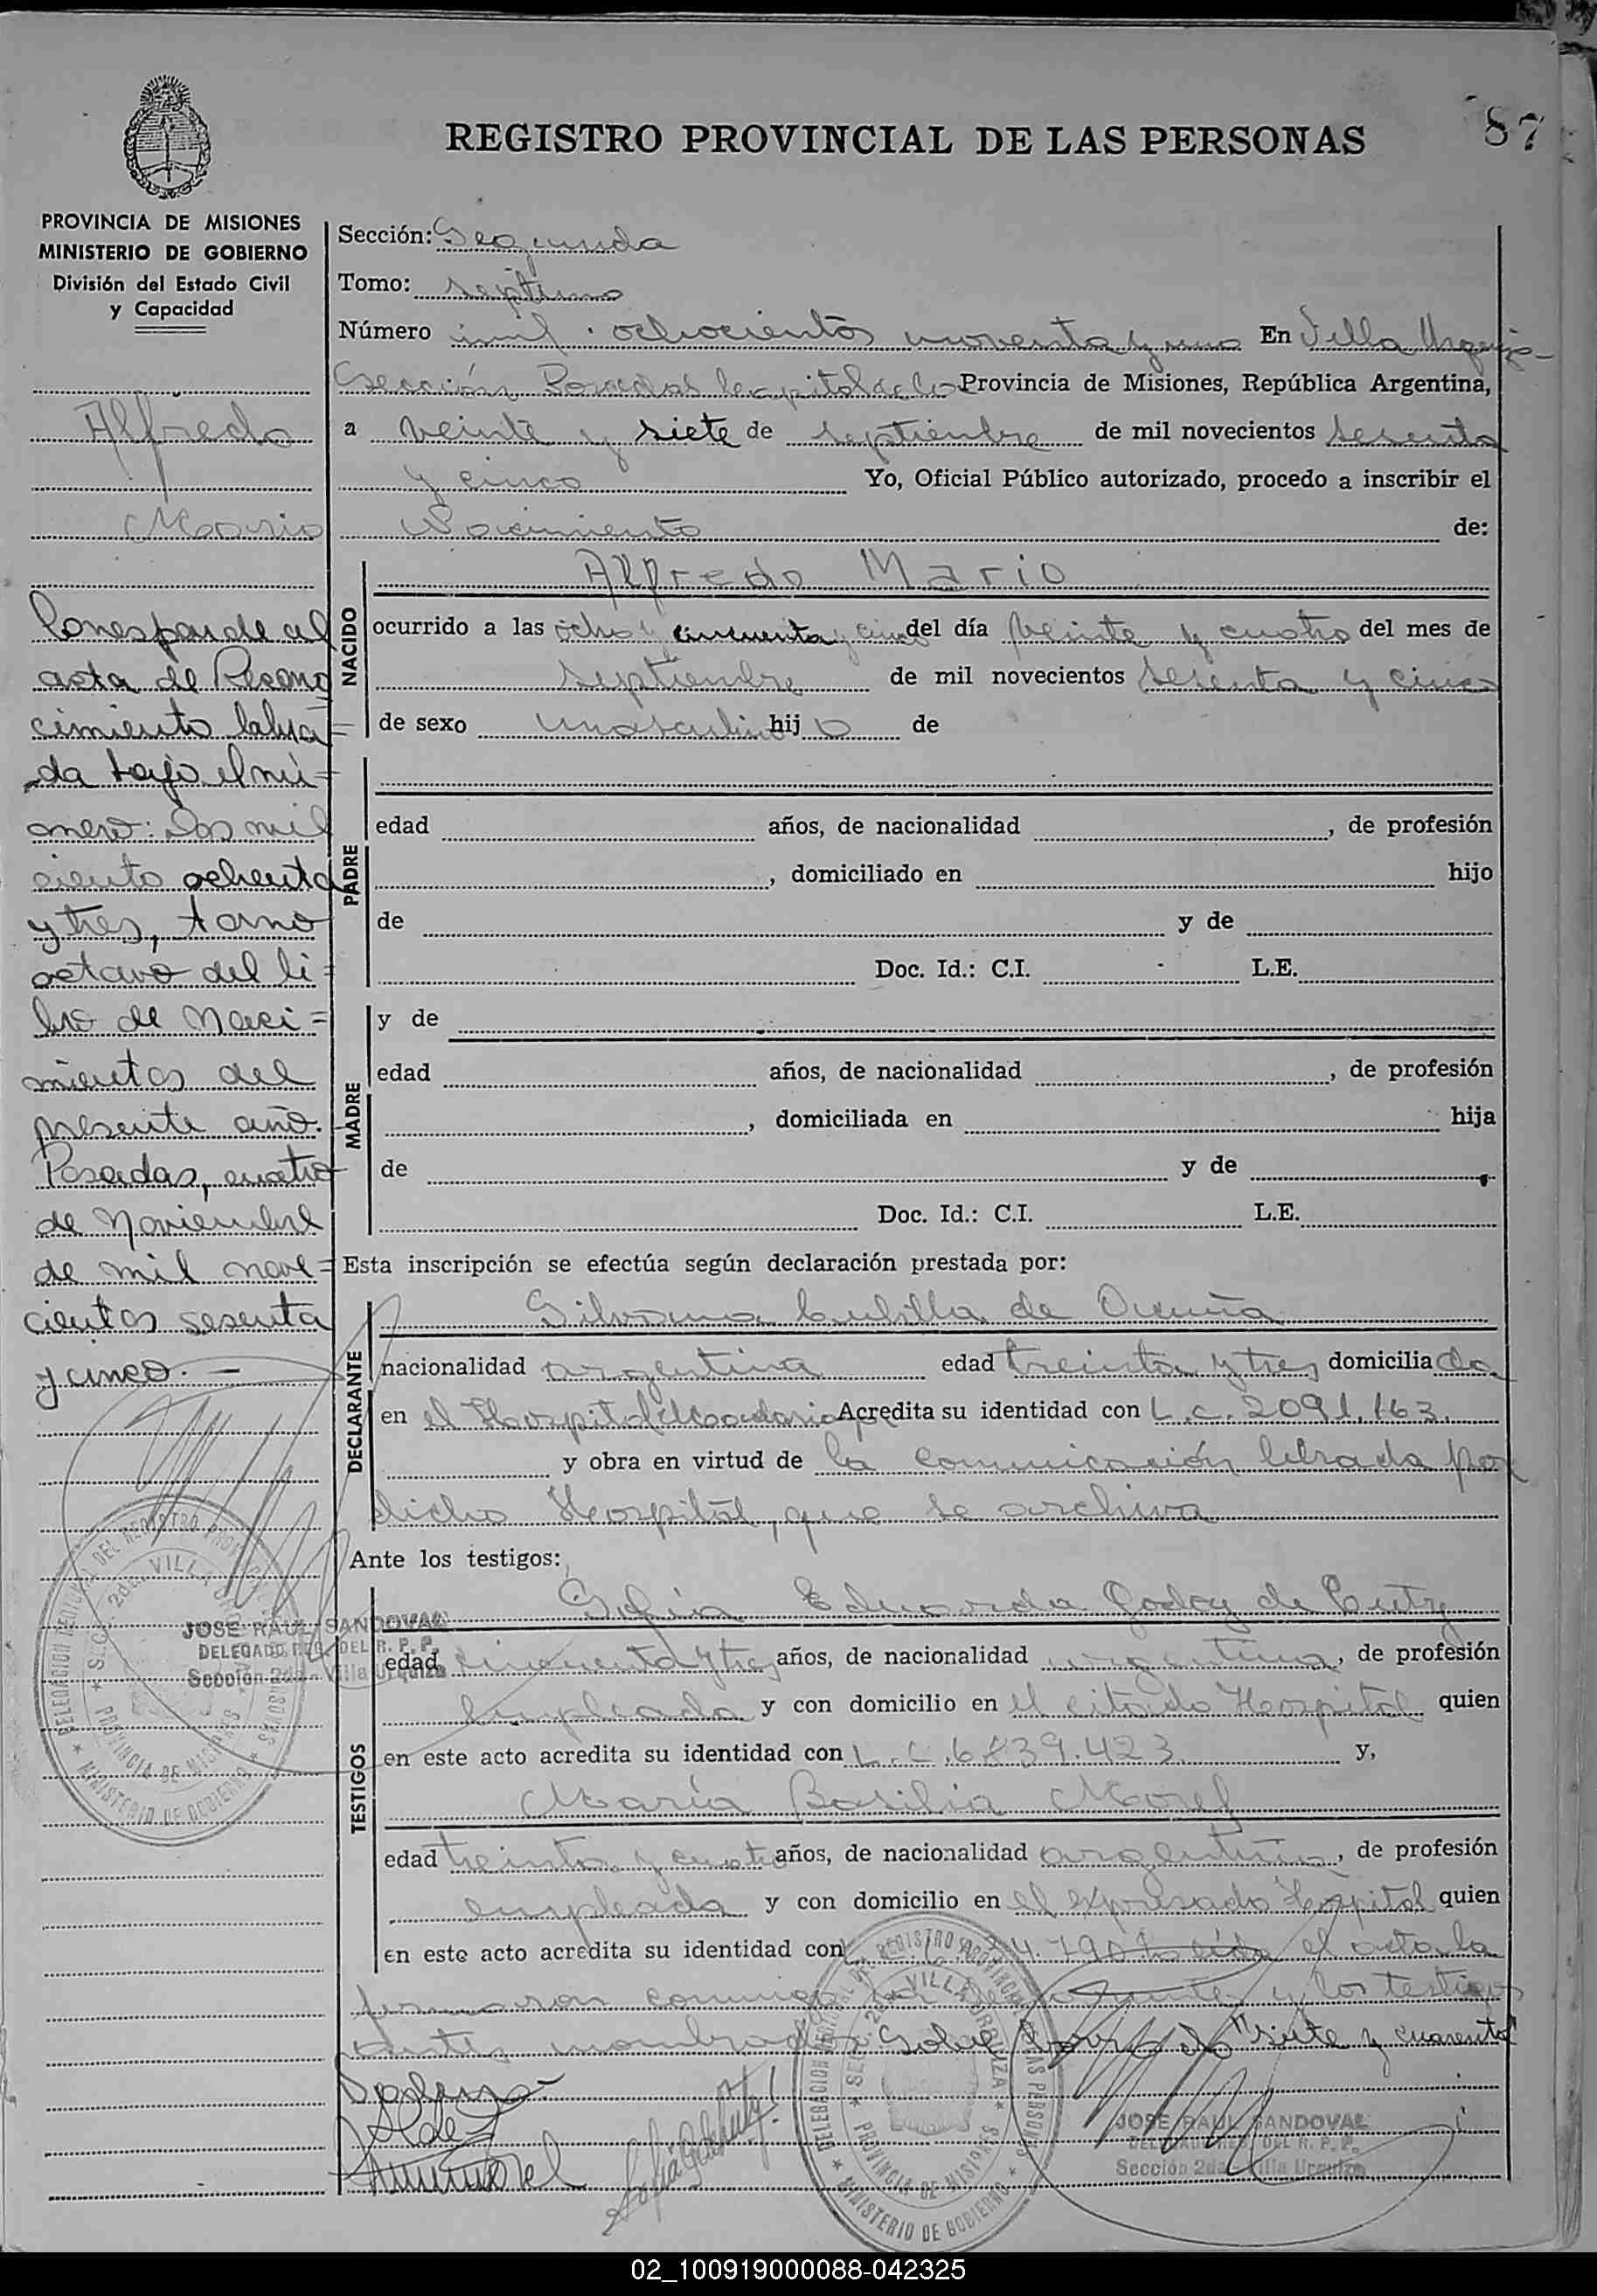 87
REGISTRO PROVINCIAL DE LAS PERSONAS
PROVINCIA DE MISIONES
MINISTERIO DE GOBIERNO
División del Estado Civil
y Capacidad
Alfredo
Mario
Corresponde al
acta de Recono
cimiento labra=
da bajo el nú=
mero: dos mil
ciento ochenta
y tres, tomo
octavo del li=
bro de Naci=
mientos del
presente año.
Posadas, cuatro
de Noviembre
de mil nove=
cientos sesenta
y cinco. —
Sección: Segunda
Tomo: septimo
Número mil ochocientos noventa y uno En Villa Urquiza-
Sección Posadas Capital de la Provincia de Misiones, República Argentina,
a veinte y siete de septiembre de mil novecientos sesenta
y cinco Yo, Oficial Público autorizado, procedo a inscribir el
Nacimiento de:
NACIDO
Alfredo Mario
ocurrido a las ocho y cincuenta y cinco del día veinte y cuatro del mes de
septiembre de mil novecientos sesenta y cinco
de sexo masculino hijo de
PADRE
edad años, de nacionalidad , de profesión
, domiciliado en hijo
de y de
Doc. Id.: C.I. L.E.
MADRE
y de
edad años, de nacionalidad , de profesión
, domiciliada en hija
de y de
Doc. Id.: C.I. L.E.
Esta inscripción se efectúa según declaración prestada por:
DECLARANTE
Silvana Cubilla de Ocuña
nacionalidad argentina edad treinta y tres domiciliada
en el Hospital Madariaga Acredita su identidad con L.C. 2091.163.
y obra en virtud de la comunicación librada por
dicho Hospital, que se archiva
Ante los testigos:
TESTIGOS
Sofia Eduarda Godoy de
edad cincuenta y tres años, de nacionalidad argentina, de profesión
empleada y con domicilio en el citado Hospital quien
en este acto acredita su identidad con L.C. 6.839.423 y,
María Basilia Morel
edad treinta y cuatro años, de nacionalidad argentina, de profesión
empleada y con domicilio en el expresado Hospital quien
en este acto acredita su identidad con leída el acta la
firmaron conmigo la declarante y los testigos
antes nombrados. Sobre borrado "siete y cuarenta
JOSE RAUL SANDOVAL
DELEGADO REG. DEL R. P. P.
Sección 2da - Villa Urquiza
DELEGACION REGIONAL DEL REGISTRO PROVINCIAL DE LAS PERSONAS
MINISTERIO DE GOBIERNO
SEC. 2da. VILLA URQUIZA
PROVINCIA DE MISIONES
JOSE RAUL SANDOVAL
DELEGADO REG. DEL R. P. P.
Sección 2da - Villa Urquiza
02_100919000088-042325